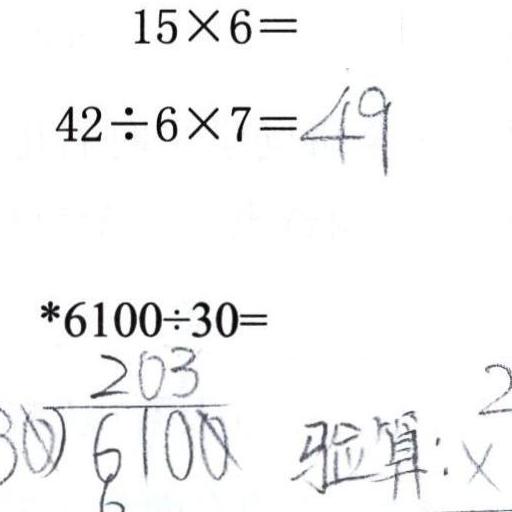 15×6=
42÷6×7=49
*6100÷30=
203
30)6100 验算: 2
6 ×